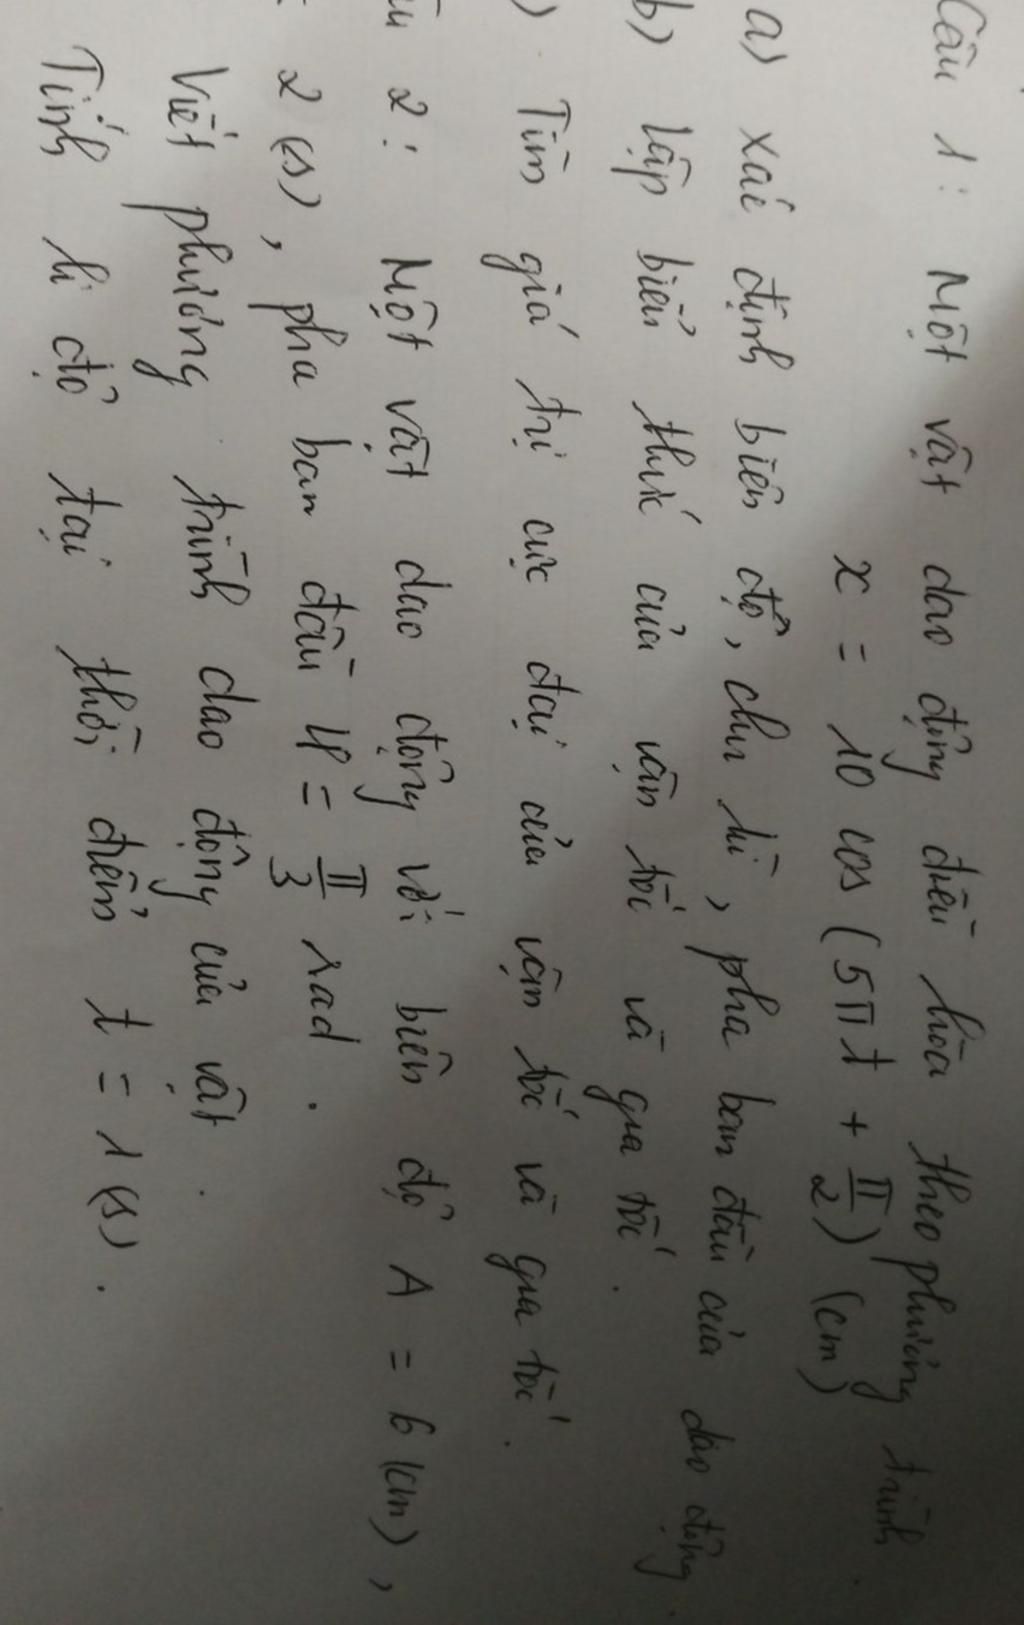 Câu 1: Một vật dao động điều hòa theo phương trình
x = 10 cos (5πt + π/2) (cm)
a) xác định biên độ, chu kì, pha ban đầu của dao động
b) lập biểu thức của vận tốc và gia tốc.
) Tìm giá trị cực đại của vận tốc và gia tốc.
2: Một vật dao động với biên độ A = 6 (cm),
2 (s), pha ban đầu φ = π/3 rad.
Viết phương trình dao động của vật.
Tính li độ tại thời điểm t = 1 (s).